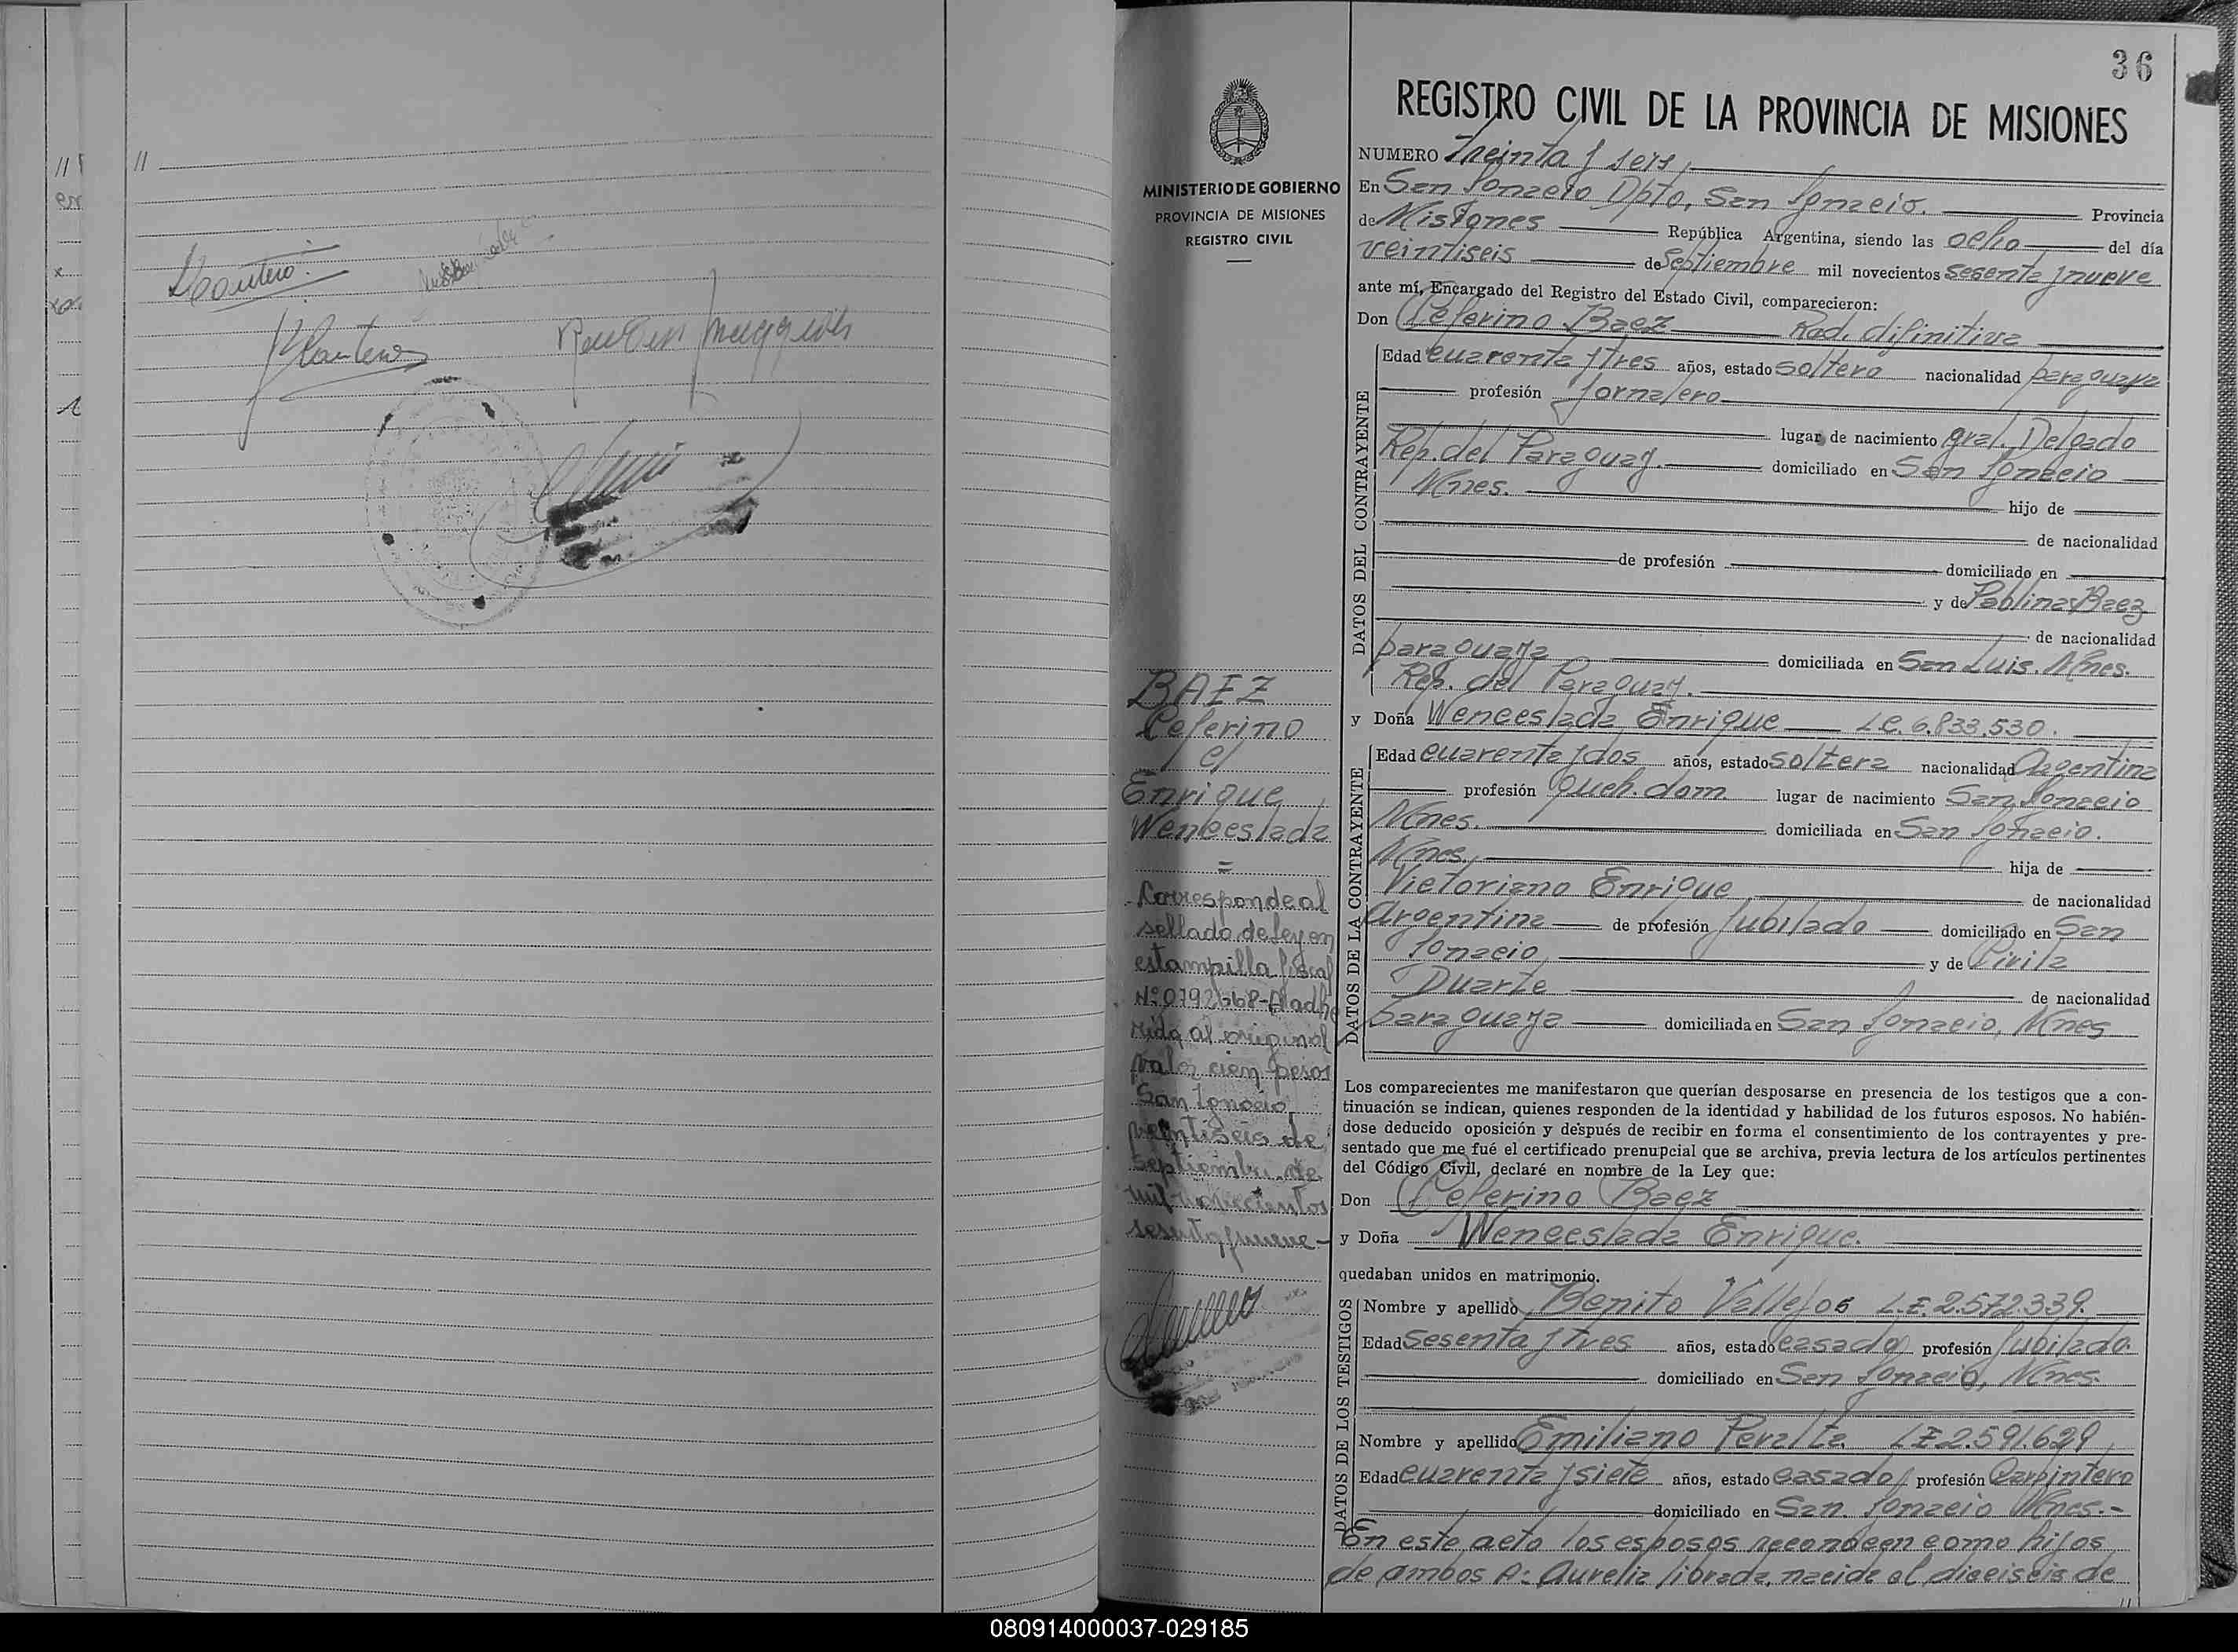 //
36
REGISTRO CIVIL DE LA PROVINCIA DE MISIONES
MINISTERIO DE GOBIERNO
PROVINCIA DE MISIONES
REGISTRO CIVIL
NUMERO Treinta y seis,
En San Ignacio Dpto. San Ignacio. Provincia
de Misiones República Argentina, siendo las ocho del día
veintiseis de Septiembre mil novecientos sesenta y nueve
ante mí, Encargado del Registro del Estado Civil, comparecieron:
Don Ceferino Baez Rad. difinitiva
DATOS DEL CONTRAYENTE
Edad cuarenta y tres años, estado soltero nacionalidad paraguaya
profesión Jornalero
lugar de nacimiento Gral. Delgado
Rep. del Paraguay. domiciliado en San Ignacio
Mnes. hijo de
de nacionalidad
de profesión domiciliado en
y de Pablina Baez
de nacionalidad
paraguaya domiciliada en San Luis. Mnes.
Rep. del Paraguay.
y Doña Wenceslada Enrique L.C. 6.833.530.
DATOS DE LA CONTRAYENTE
Edad cuarenta y dos años, estado soltera nacionalidad Argentina
profesión Queh. dom. lugar de nacimiento San Ignacio
Mnes. domiciliada en San Ignacio.
Mnes. hija de
Victoriano Enrique de nacionalidad
Argentina de profesión Jubilado domiciliado en San
Ignacio y de Pirila
Duarte de nacionalidad
paraguaya domiciliada en San Ignacio, Mnes
Los comparecientes me manifestaron que querían desposarse en presencia de los testigos que a con-
tinuación se indican, quienes responden de la identidad y habilidad de los futuros esposos. No habién-
dose deducido oposición y después de recibir en forma el consentimiento de los contrayentes y pre-
sentado que me fué el certificado prenupcial que se archiva, previa lectura de los artículos pertinentes
del Código Civil, declaré en nombre de la Ley que:
Don Ceferino Baez
y Doña Wenceslada Enrique.
quedaban unidos en matrimonio.
DATOS DE LOS TESTIGOS
Nombre y apellido Benito Vallejos L.E. 2.572.339.
Edad sesenta y tres años, estado casado profesión Jubilado.
domiciliado en San Ignacio, Mnes.
Nombre y apellido Emiliano Peralta L.E 2.591.629
Edad cuarenta y siete años, estado casado profesión Carpintero
domiciliado en San. Ignacio Mnes.-
En este acto los esposos reconocen como hijos
de ambos A: Aurelia librada, nacida el dieciseis de
//
BAEZ
Ceferino
c/
Enrique
Wenceslada
=
Corresponde al
sellado de ley en
estampilla fiscal
adhe
rida al original
valor cien pesos
San Ignacio,
veintiseis de
septiembre de
mil novecientos
sesenta y nueve-
080914000037-029185